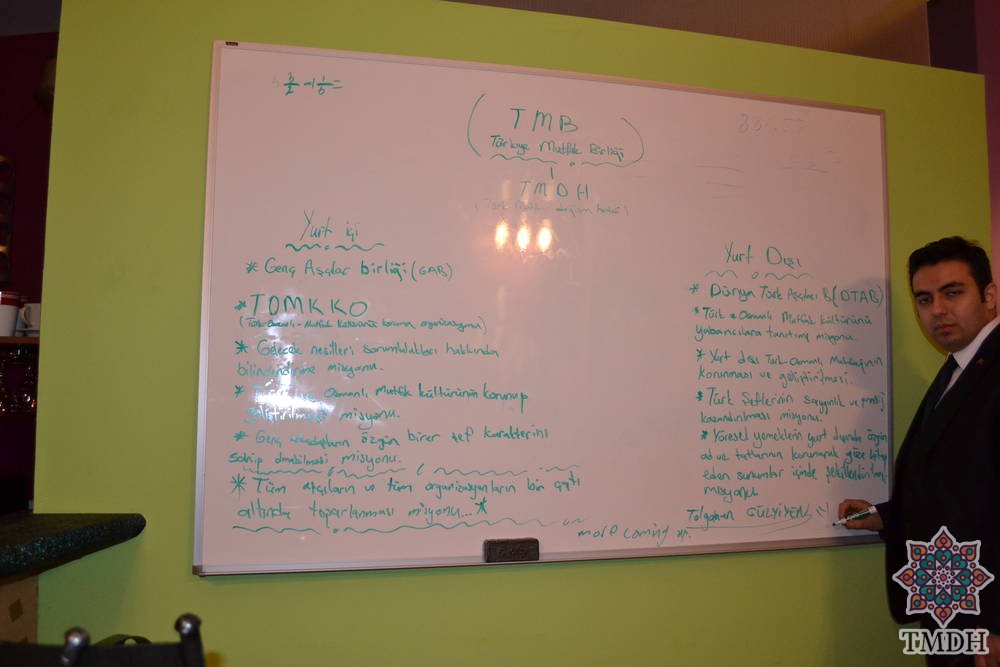 TMB
Türkiye Mutfak Birliği
TMDH
(Türk Mutfağı değişim hareketi)
Yurt içi
* Genç Aşçılar birliği (GAB)
* TOMKKO
(Türk-Osmanlı-Mutfak Kültürünü koruma organizasyonu)
* Gelecek nesilleri sorumlulukları hakkında
bilinçlendirme misyonu.
* Osmanlı Mutfak kültürünün korunup
geliştirilmesi misyonu.
* Genç özgün birer şef karakterini
sahip olabilmesi misyonu.
* Tüm aşçıların ve tüm organizasyonların bir çatı
altında toparlanması misyonu...*
Yurt Dışı
* Dünya Türk Aşçıları B(DTAB)
* Türk ve Osmanlı Mutfak kültürünü
yabancılara tanıtımı misyonu.
* Yurt dışı Türk-Osmanlı Mutfağının
korunması ve geliştirilmesi.
* Türk Şeflerinin saygınlık ve prestij
kazandırılması misyonu.
* Yöresel yemeklerin yurt dışında özgün
ad ve tatlarının korunarak göze hitap
eden sunumlar içinde şekillendirilmesi
misyonu
Tolgahan GÜLYİYEN
more coming up.
TMDH